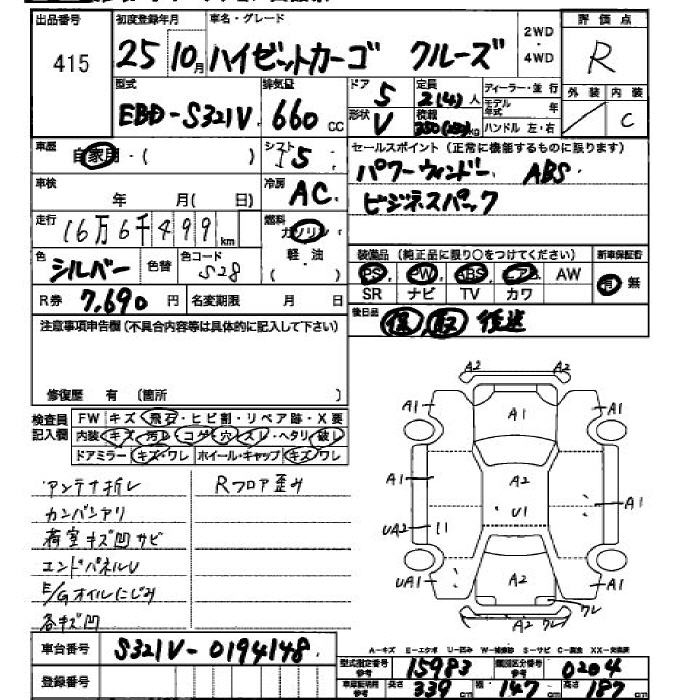 出品番号 初度登録年月 車名・グレード 2WD・4WD 評価点
415 25 10月 ハイゼットカーゴ クルーズ R
型式 排気量 ドア 定員 ディーラー・並行 外装 内装
EBD-S321V 660cc 5 2(4)人 モデル年式 年
形状 V 積載 350(250)kg ハンドル 左・右 C
車歴 自家用・( ) シフト I5 セールスポイント (正常に機能するものに限ります)
パワーウィンドー ABS
車検 年 月(日) 冷房 AC ビジネスパック
走行 16万6千499km 燃料 ガソリン
軽・油 装備品 (純正品に限り○をつけてください) 新車保証書
色 シルバー 色替 色コード S28 ( ) PS PW ABS エア AW 有 無
SR ナビ TV カワ
R券 7,690円 名変期限 月 日 後日品 保 取 後送
注意事項申告欄 (不具合内容等は具体的に記入して下さい)
修復歴 有 (箇所 )
検査員記入欄 FW キズ・飛石・ヒビ割・リペア跡・X要
内装 キズ・汚れ・コゲ・穴・スレ・ヘタリ・破れ
ドアミラー キズ・ワレ ホイール・キャップ キズ・ワレ
アンテナ折レ Rフロア歪み
カンバンアリ
荷室キズ凹サビ
エンドパネルU
E/Gオイルにじみ
各キズ凹
A2 A2
A1 A1 A1
A1 A2 A1
U1
UA2
UA1 A2 A1
A2 ワレ ワレ
車台番号 S321V-0194148
A-キズ E-エクボ U-凹み W-補修跡 S-サビ C-腐食 XX-交換済
登録番号 型式指定番号 参考 15983 類別区分番号 参考 0204
車体証明書 参考 長さ 339cm 幅 147cm 高さ 187cm